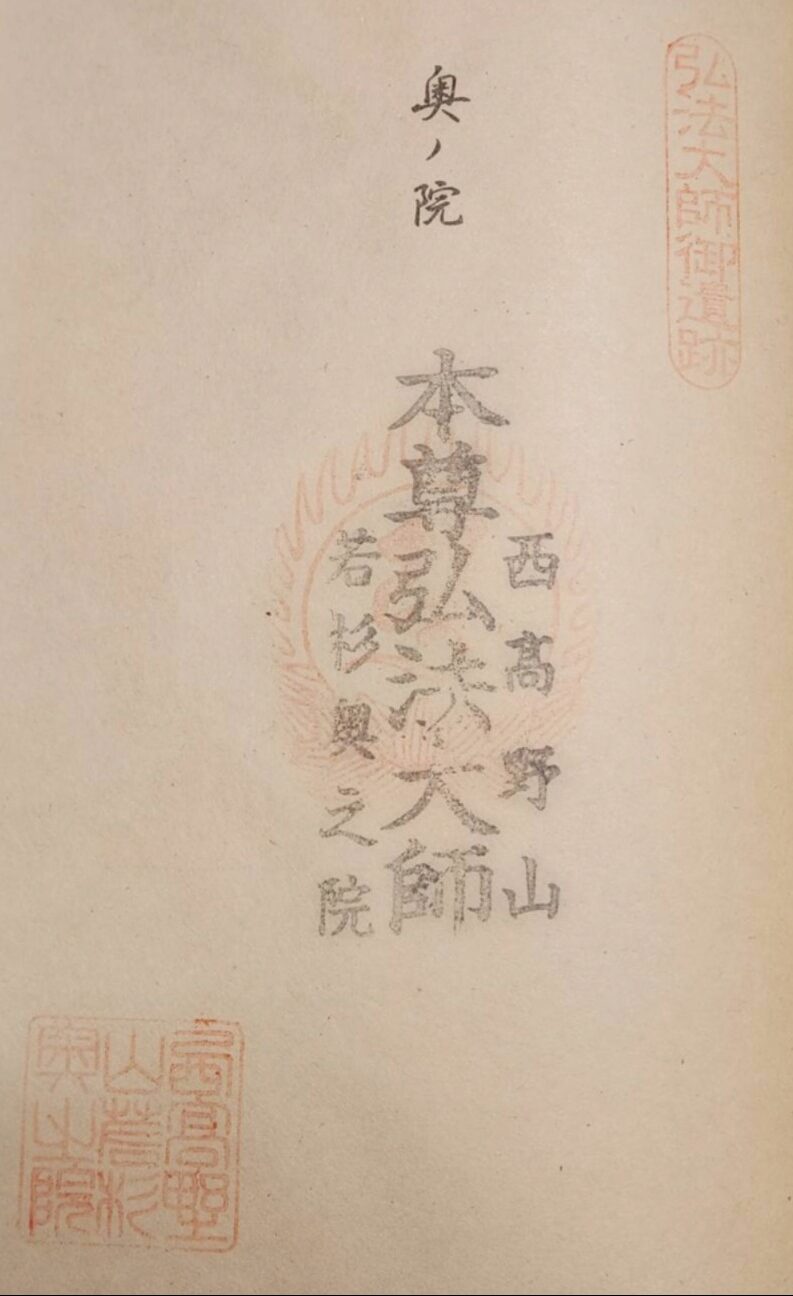 弘法大師御遺跡
奥ノ院
西高野山
本尊弘法大師
若杉奥之院
西高野
山若杉
奥之院